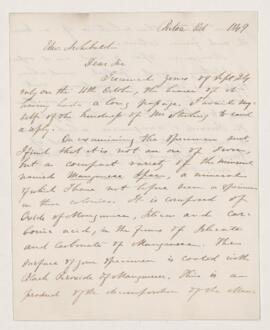 Pictou Oct 1869
Edw Archibald
Dear Sir
I received yours of Sept 24
only on the 11th October, the bearer of it
having had a long passage. I avail my
self of the kindness of Mr Starling to send
a reply.
On examining the specimen sent
I find that it is not an ore of Silver,
but a compact variety of the mineral
named Manganese Spar, a mineral
of which I have not before seen a specimen
in these colonies. It is composed of
Oxide of Manganese, Silica and car
bonic acid, in the forms of Silicate
and carbonate of Manganese. The
surface of your specimen is coated with
Black Peroxide of Manganese, this is a
product of the decomposition of the Man